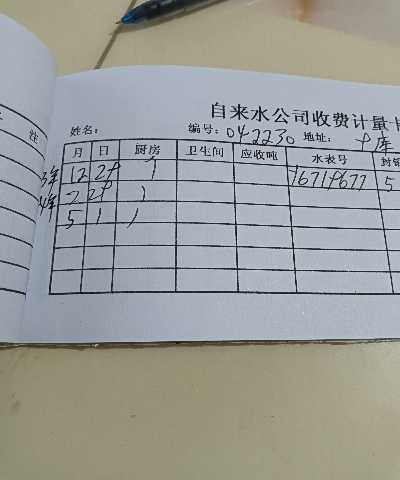 注
自来水公司收费计量卡
姓名： 编号：042230 地址：
月 日 厨房 卫生间 应收吨 水表号 封铅
3年 12 29 1 5
4年 2 29 1
5 1 1